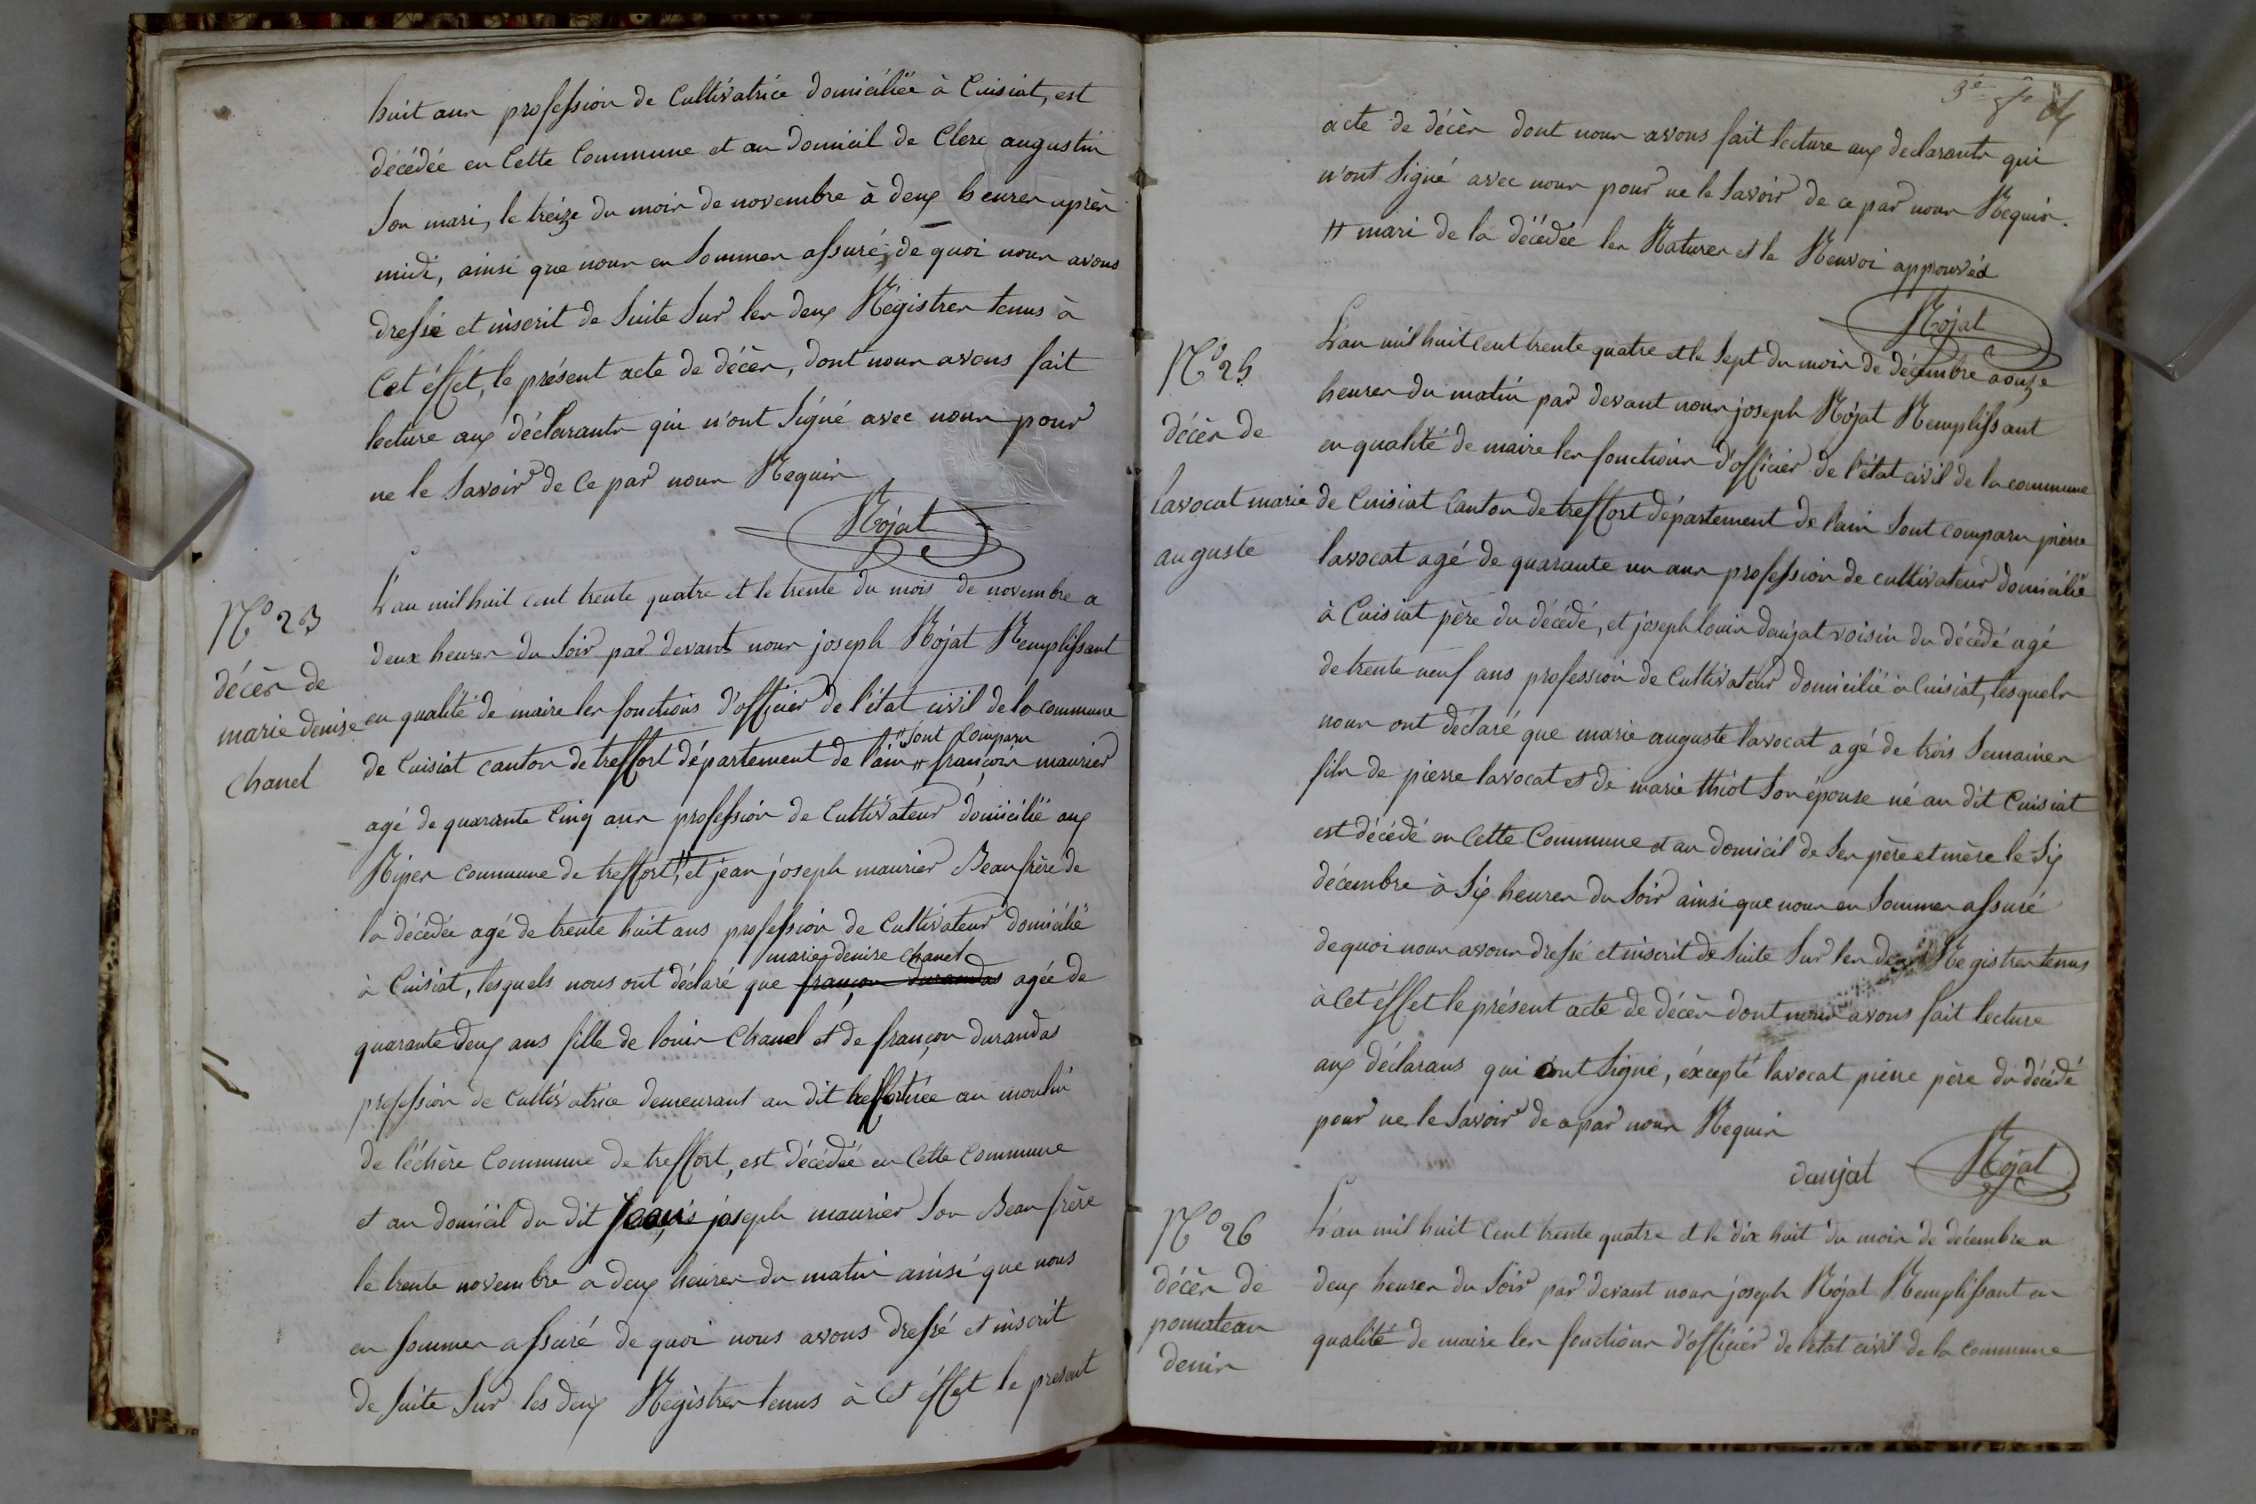 huit ans profession de Cultivatrice domiciliée à Cuisiat, est
décédée en Cette Commune et au domicil de Clerc augustin
Son mari, le treize du mois de novembre à deux heures après
midi, ainsi que nous en Sommes assuré, de quoi nous avons
dressé et inscrit de Suite Sur les deux Régistres tenus à
Cet éffet, le présent acte de décès, dont nous avons fait
lecture aux déclarants qui n'ont Signé avec nous pour
ne le Savoir de Ce par nous Requis
Rojat
N° 23
décès de
marie denise
chanel
L'an mil huit cent trente quatre et le trente du mois de novembre a
deux heures du Soir par devant nous joseph Rojat Remplissant
en qualité de maire les fonctions d'officier de l'état civil de la commune
Sont Comparu
de Cuisiat canton de treffort département de l'ain # françois maurier
agé de quarante Cinq ans profession de Cultivateur domicilié aux
Ripes commune de treffort, # et jean joseph maurier Beau frère de
la décédée agé de trente huit ans profession de Cultivateur domicilié
marie denise Chanel
à Cuisiat, lesquels nous ont déclaré que françon durandas agée de
quarante deux ans fille de louis Chanel et de françon durandas
profession de Cultivatrice demeurant au dit treffort née au moulin
de l'échère Commune de treffort, est décédée en Cette Commune
et au domicil du dit jean joseph maurier Son Beau frère
le trente novembre a deux heures du matin ainsi que nous
en sommes assuré de quoi nous avons dressé et inscrit
de Suite Sur les deux Registres tenus à Cet éffet le présent
acte de décès dont nous avons fait lecture aux declarants qui
n'ont Signé avec nous pour ne le Savoir de ce par nous Requis.
# mari de la décédée les Ratures et le Renvoi approuvés
Rojat
N° 25
décès de
lavocat marie
auguste
L'an mil huit cent trente quatre et le Sept du mois de décembre a onze
heures du matin par devant nous joseph Rojat Remplissant
en qualité de maire les fonctions d'officier de l'état civil de la commune
de Cuisiat Canton de treffort département de l'ain Sont comparu pierre
lavocat agé de quarante un ans profession de cultivateur domicilié
à Cuisiat père du décédé, et joseph louis daujat voisin du décédé agé
de trente neuf ans profession de Cultivateur domicilié à Cuisiat, lesquels
nous ont déclaré que marie auguste lavocat agé de trois Semaines
fils de pierre lavocat et de marie thiot Son épouse né au dit Cuisiat
est décédé en Cette Commune et au domicil de Ses père et mère le Six
décembre à Six heures du Soir ainsi que nous en Sommes assuré
de quoi nous avons dressé et inscrit de Suite Sur les deux Régistres tenus
à Cet éffet le présent acte de décès dont nous avons fait lecture
aux déclarans qui ont Signé, éxcepté lavocat pierre père du décédé
pour ne le Savoir de ce par nous Requis
daujat Rojat
N° 26
décès de
pomateau
denis
L'an mil huit Cent trente quatre et le dix huit du mois de décembre a
deux heures du Soir par devant nous joseph Rojat Remplissant en
qualité de maire les fonctions d'officier de l'état civil de la commune